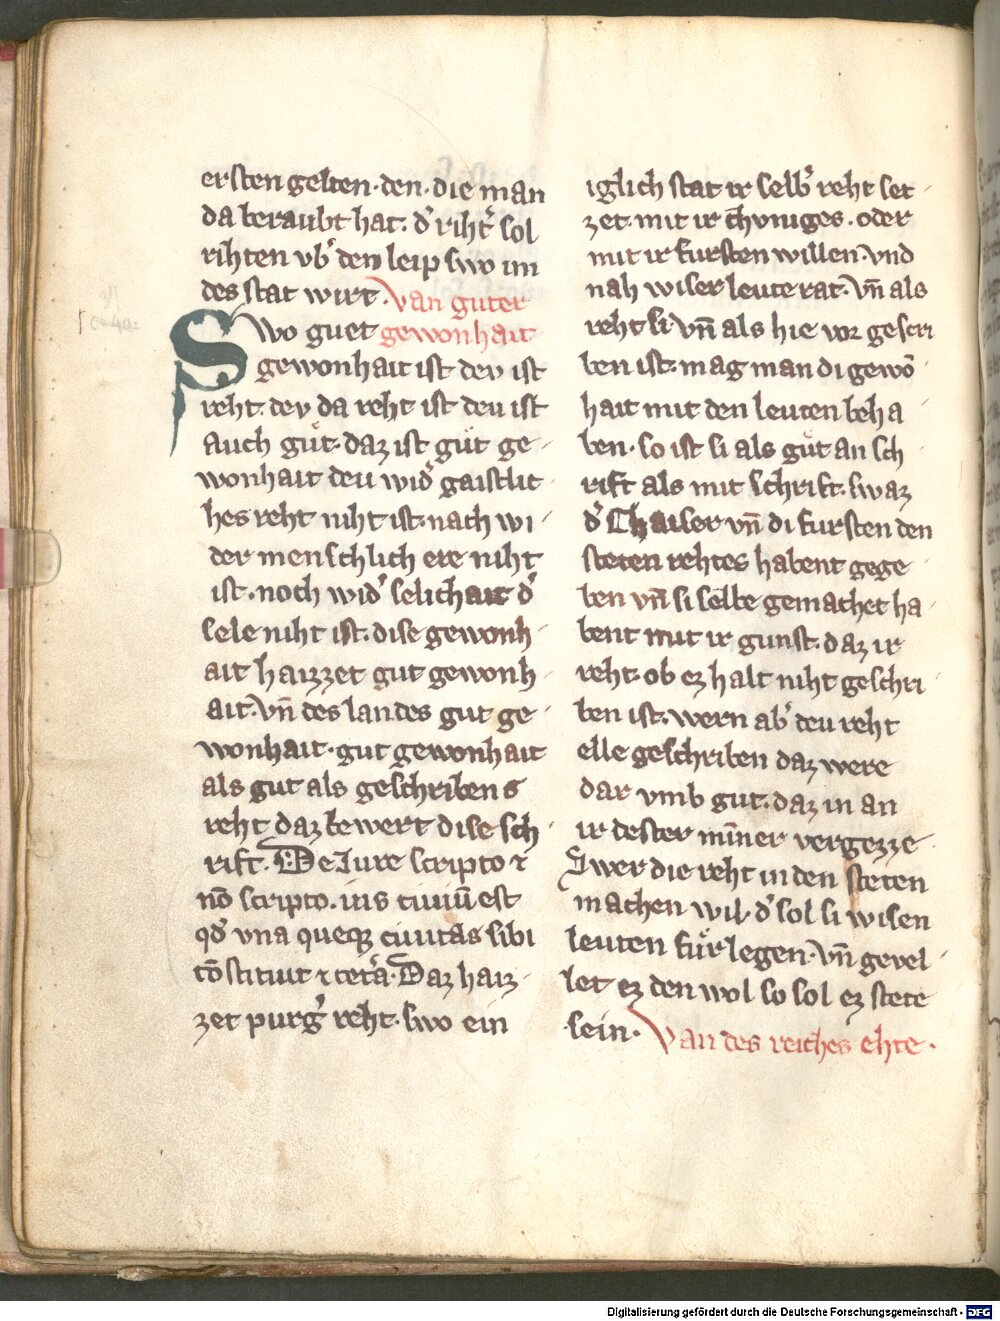 ersten gelten · den · die man
da beraubt hat · d̾ riht̾ sol
rihten vb̾ den leip swo im
des stat wirt · Van guter
Swo guet gewonhait
gewonhait ist dev ist
reht · dev da reht ist deu ist
auch gůt · daz ist gůt ge-
wonhait deu wid̾ gaistlic-
hes reht niht ist · nach wi-
der menschlich ere niht
ist · noch wid̾ selichait d̾
sele niht ist · dise gewonh-
ait haizzet gut gewonh-
ait · vn̄ des landes gut ge-
wonhait · gut gewonhait
als gut als geschribens
reht daz bewert dise sch-
rift · De Iure scripto ⁊
nō scripto · ius ciuiū est
qd̾ vna queqꝫ ciuitas sibi
cōstituit ⁊ cet̾a · Daz haiz-
zet purg̾ reht · swo ein
iglich stat ir selb̾ reht set-
zet · mit ir ch̄vniges · oder
mit ir fursten willen · vnd
nah wiser leute rat · Vn̄ als
reht si Vn̄ als hie vor gescri-
ben ist · mag man di gewō
hait mit den leuten beha-
ben · so ist si als gůt an sch
rift als mit schrift · swaz
d̾ Chaiser vn̄ di fursten den
steten rehtes habent gege-
ben vn̄ si selbe gemachet ha-
bent mit ir gunst · daz ir
reht · ob ez halt niht geschri-
ben ist · wern ab̾ deu reht
elle geschriben daz were
dar vmb gut · daz in an
ir dester miñer vergezze
Swer die reht in den steten
machen wil · d̾ sol si wisen
leuten fůrlegen · Vn̄ gevel-
let ez den wol so sol ez stete
sein · Van des reiches ehte ·
Digitalisierung gefördert durch die Deutsche Forschungsgemeinschaft - DFG